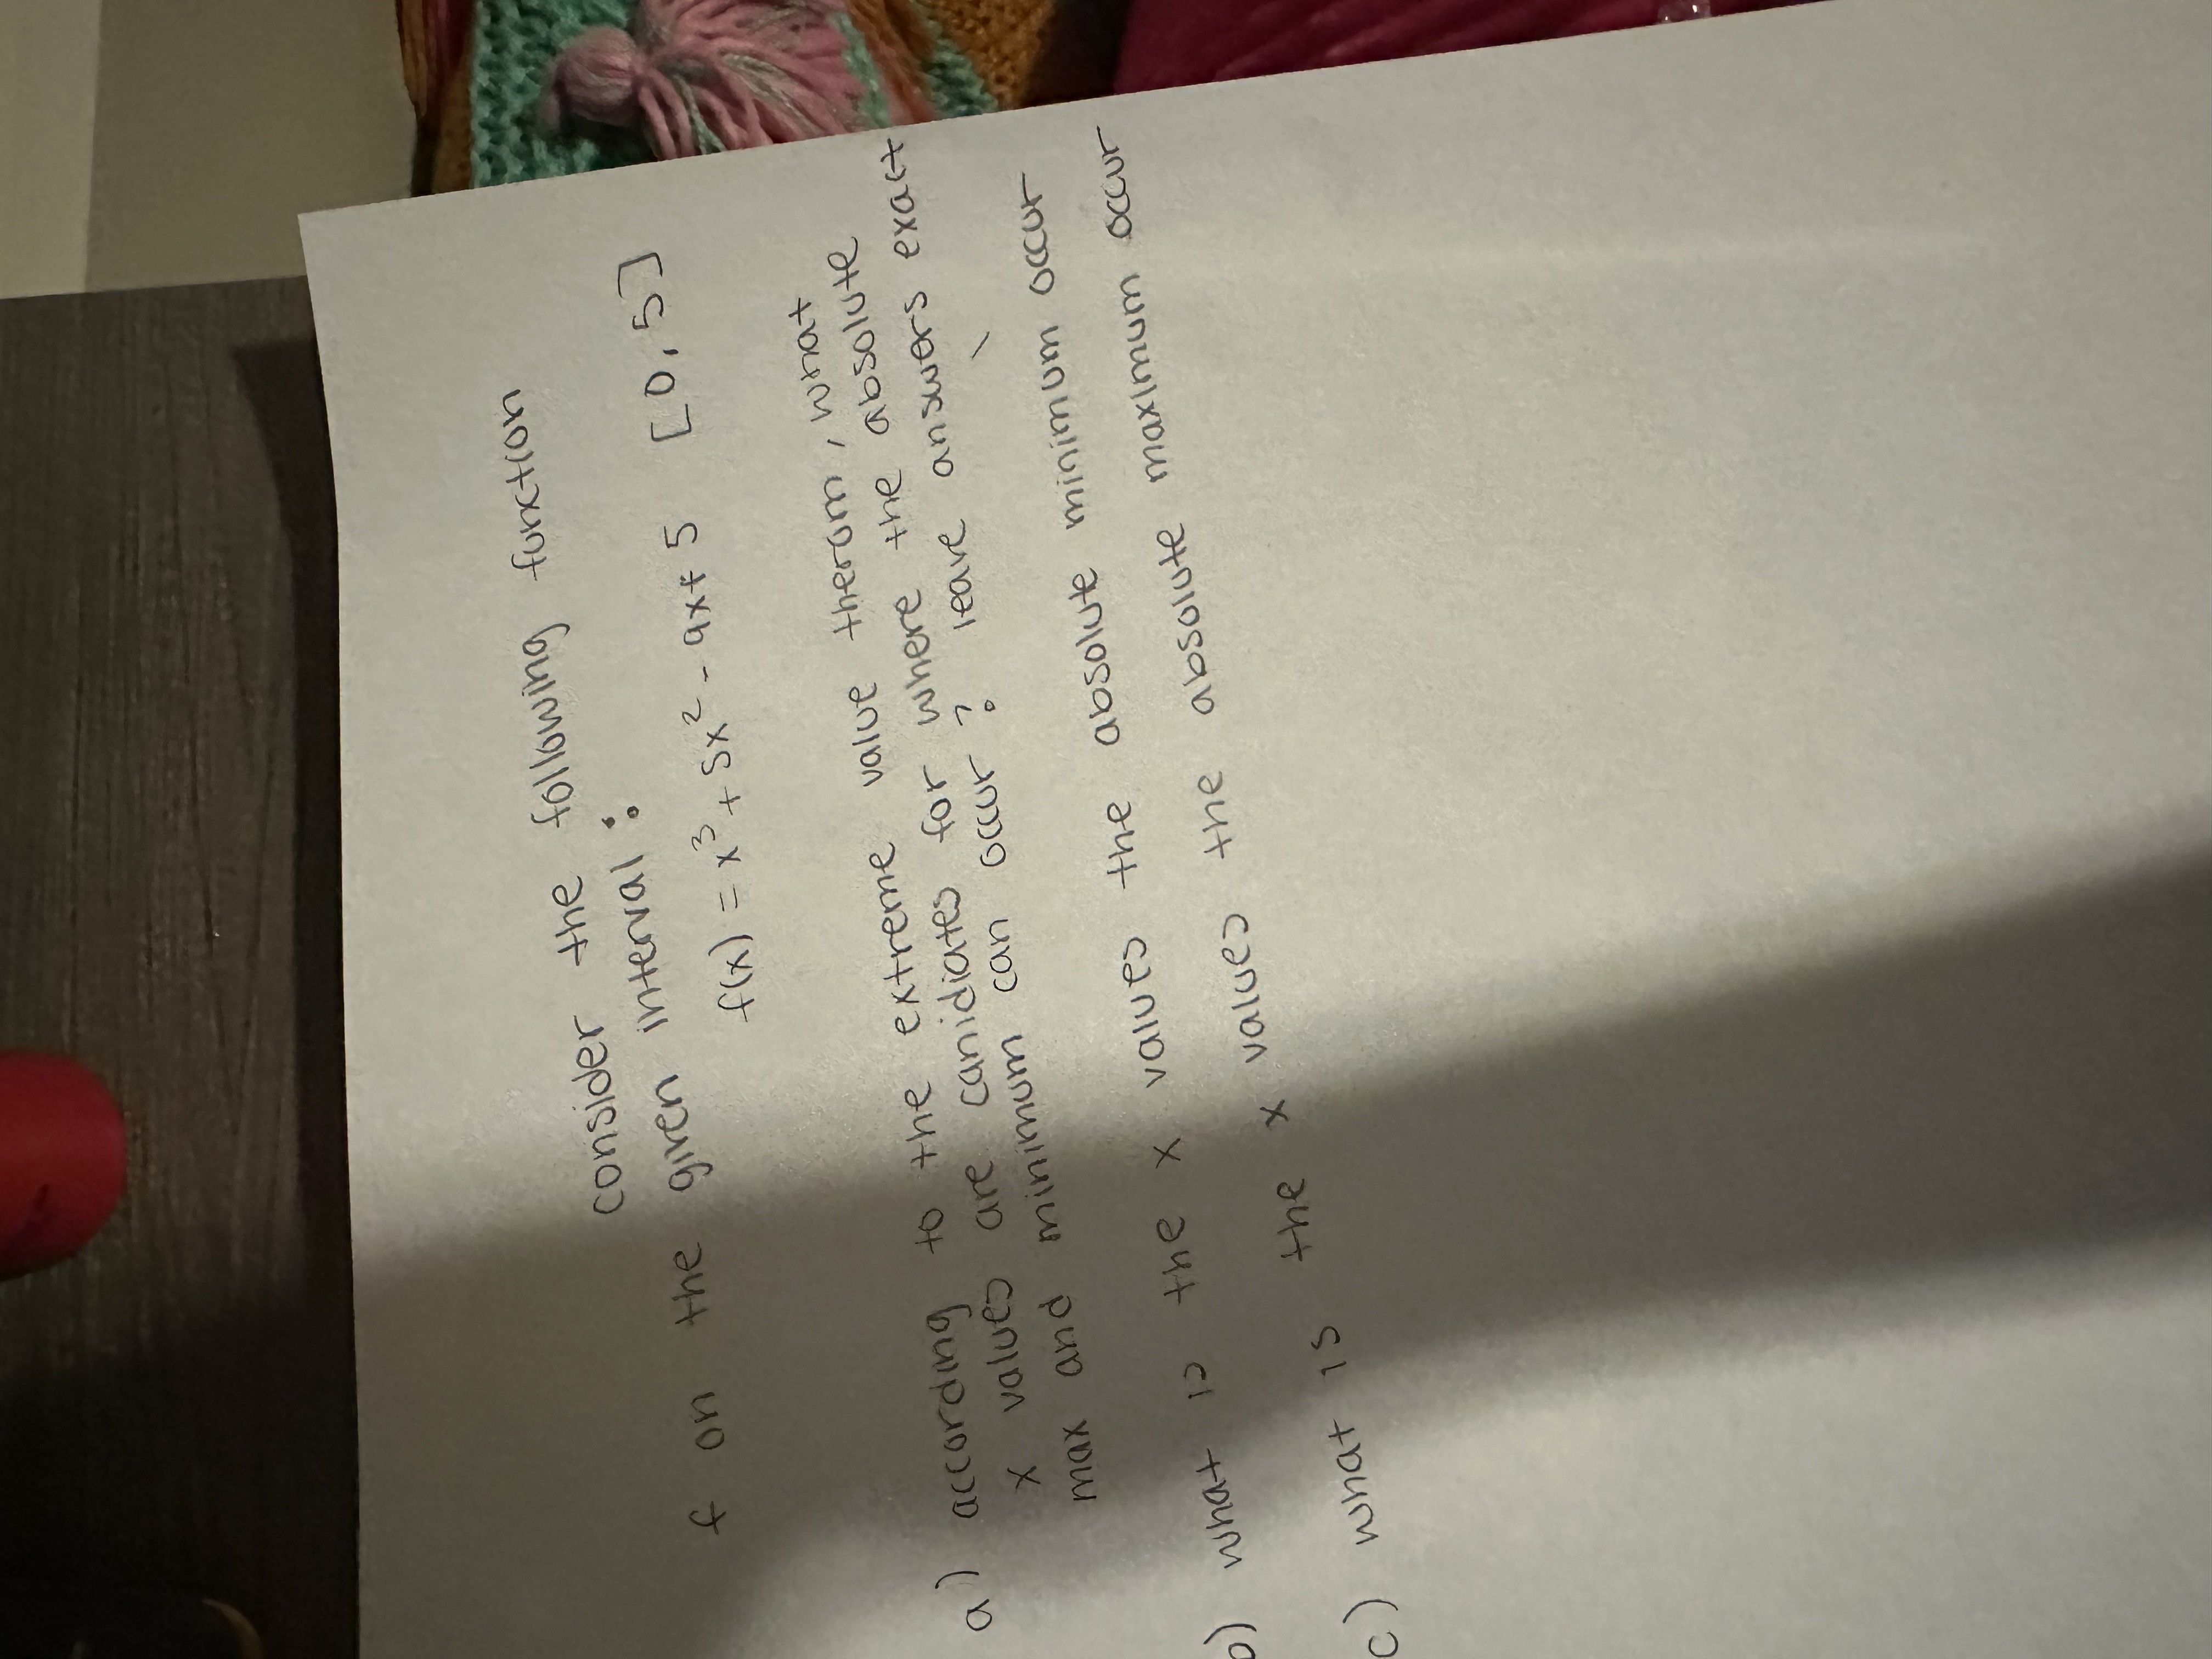 consider the following function
f on the given interval:
f(x) = x³ + 5x² - 9x + 5 [0, 5]
a) according to the extreme value theram, what
x values are canidiates for where the absolute
max and minimum can occur? leave answers exact
b) what is the x values the absolute minimum occur
c) what is the x values the absolute maximum occur